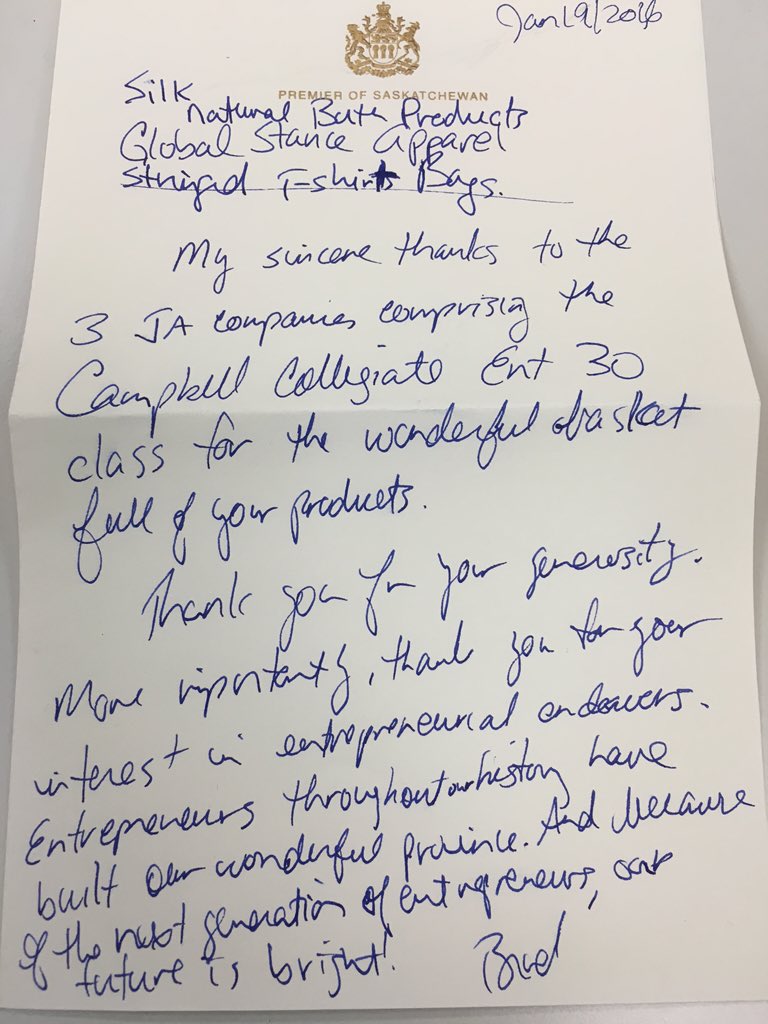 Jan 19/2016
PREMIER OF SASKATCHEWAN
Silk
natural Bath Products
Global Stance Apparel
T-shirt Bags.
My sincere thanks to the
3 JA companies comprising the
Campbell Collegiate Ent 30
class for the wonderful basket
full of your products.
Thank you for your generosity.
More importantly, thank you for your
interest in entrepreneurial endeavors.
Entrepreneurs throughout our history have
built our wonderful province. And because
of the next generation of entrepreneurs, our
future is bright!
Brad